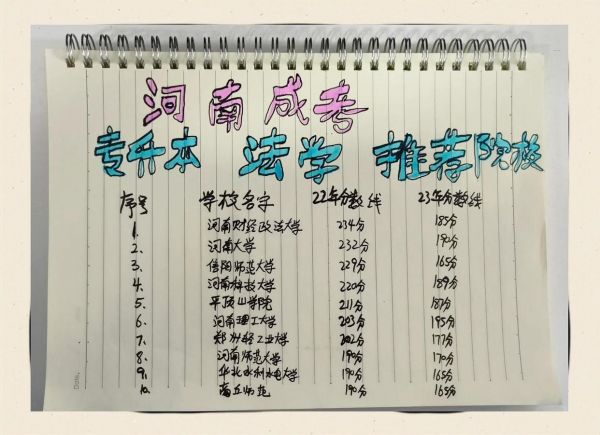 河南成考
专升本 法学 推荐院校
序号 学校名字 22年分数线 23年分数线
1. 河南财经政法大学 234分 185分
2. 河南大学 232分 190分
3. 信阳师范大学 229分 165分
4. 河南科技大学 220分 189分
5. 平顶山学院 211分 187分
6. 河南理工大学 203分 195分
7. 郑州轻工业大学 202分 177分
8. 河南师范大学 190分 170分
9. 华北水利水电大学 190分 165分
10. 商丘师范 190分 165分
Date.